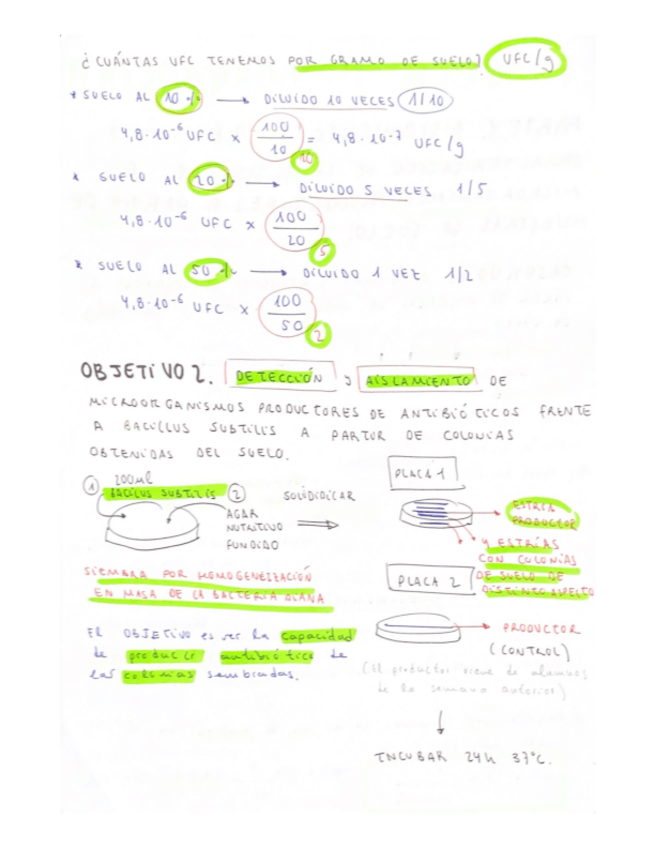 ¿CUÁNTAS UFC TENEMOS POR GRAMO DE SUELO? UFC/g
* SUELO AL 10% → DILUIDO 10 VECES 1/10
4,8·10⁻⁶ UFC × 100/10 = 4,8·10⁻⁷ UFC/g
10
* SUELO AL 20% → DILUIDO 5 VECES 1/5
4,8·10⁻⁶ UFC × 100/20
5
* SUELO AL 50% → DILUIDO 1 VEZ 1/2
4,8·10⁻⁶ UFC × 100/50
2
OBJETIVO 2. DETECCIÓN y AISLAMIENTO DE
MICROORGANISMOS PRODUCTORES DE ANTIBIÓTICOS FRENTE
A BACILLUS SUBTILIS A PARTIR DE COLONIAS
OBTENIDAS DEL SUELO.
① 200ml
BACILUS SUBTILIS ②
AGAR
NUTRITIVO
FUNDIDO
SOLIDIDICAR ⇒
SIEMBRA POR HOMOGENEIZACIÓN
EN MASA DE LA BACTERIA DIANA
El OBJETIVO es ver la capacidad
de producir antibiótico de
las colonias sembradas.
PLACA 1
ESTRÍA
PRODUCTOR
y ESTRÍAS
CON COLONIAS
DE SUELO DE
DISTINTO ASPECTO
PLACA 2
PRODUCTOR
(CONTROL)
(El productor viene de alumnos
de la semana anterior)
↓
INCUBAR 24h 37ºC.